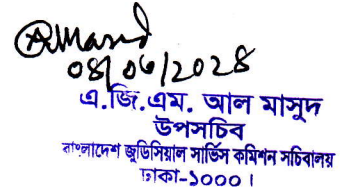 ০৪/০৬/২০২৪
এ.জি.এম. আল মাসুদ
উপসচিব
বাংলাদেশ জুডিসিয়াল সার্ভিস কমিশন সচিবালয়
ঢাকা-১০০০।